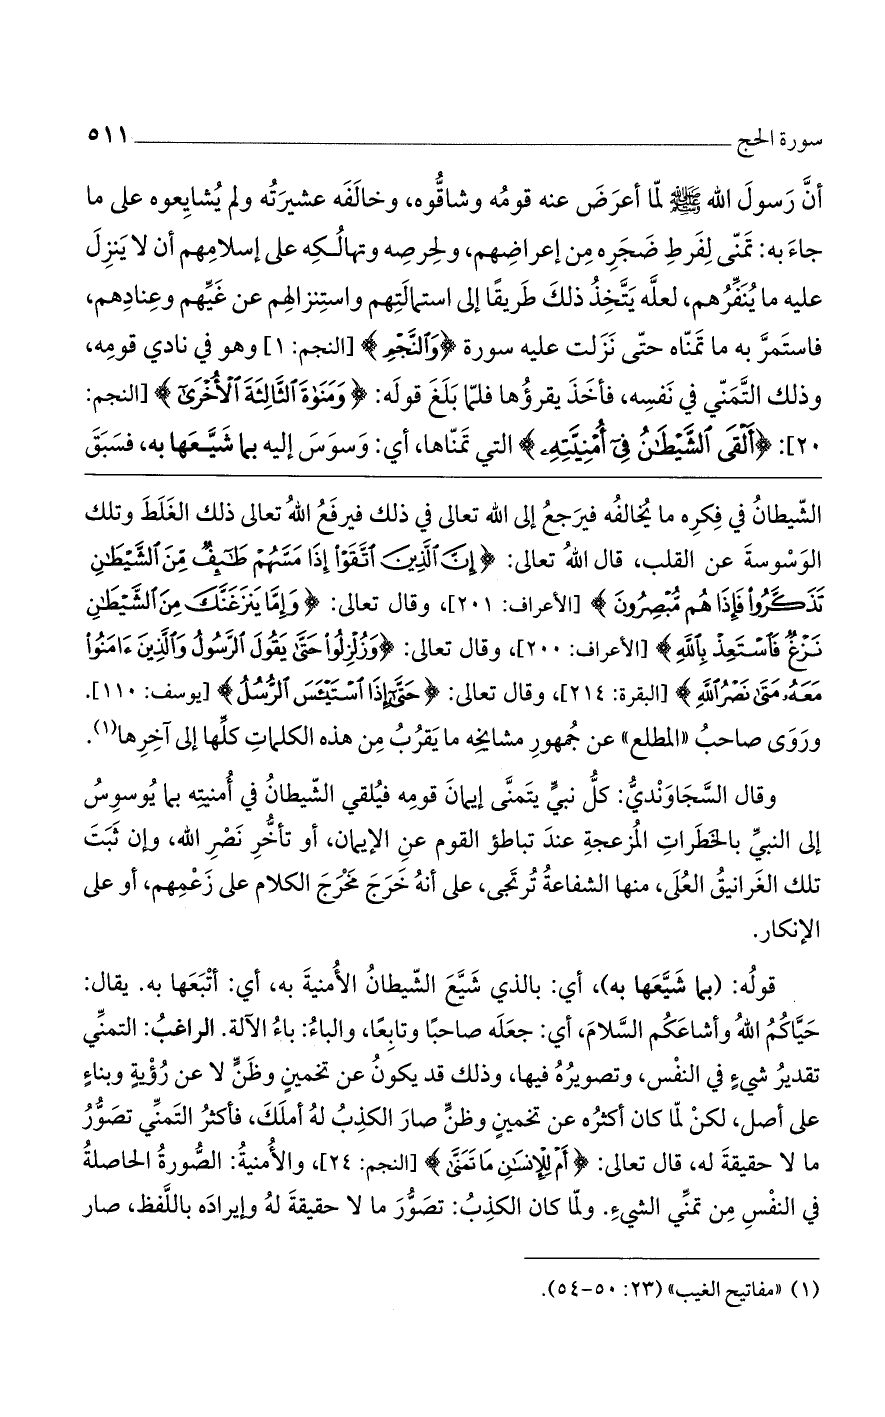 سورة الحج ٥١١
أنَّ رَسولَ الله ﷺ لمّا أعرَضَ عنه قومُه وشاقُّوه، وخالَفَه عشيرَتُه ولم يُشايِعوه على ما
جاءَ به: تمَنّى لِفَرطِ ضَجَرِه مِن إعراضِهم، ولحِرصِه وتهالُكِه على إسلامِهم أن لا يَنزِلَ
عليه ما يُنَفِّرُهم، لعلَّه يَتَّخِذُ ذلكَ طَريقًا إلى استمالَتِهم واستِنزالِهم عن غَيِّهم وعِنادِهم،
فاستَمرَّ به ما تمَنّاه حتّى نَزَلت عليه سورة ﴿وَٱلنَّجْمِ﴾ [النجم: ١] وهو في نادي قومِه،
وذلك التَّمَنّي في نَفسِه، فأخَذَ يقرؤُها فلمّا بَلَغَ قولَه: ﴿وَمَنَوٰةَ ٱلثَّالِثَةَ ٱلْأُخْرَىٰٓ﴾ [النجم:
٢٠]: ﴿أَلْقَى ٱلشَّيْطَٰنُ فِىٓ أُمْنِيَّتِهِۦ﴾ التي تمَنّاها، أي: وَسوَسَ إليه بما شَيَّعَها به، فسَبَقَ
الشّيطانُ في فِكرِه ما يُخالفُه فيرَجعُ إلى الله تعالى في ذلك فيرفَعُ اللهُ تعالى ذلك الغَلَطَ وتلك
الوَسْوسةَ عن القلب، قال اللهُ تعالى: ﴿إِنَّ ٱلَّذِينَ ٱتَّقَوْا۟ إِذَا مَسَّهُمْ طَٰٓئِفٌ مِّنَ ٱلشَّيْطَٰنِ
تَذَكَّرُوا۟ فَإِذَا هُم مُّبْصِرُونَ﴾ [الأعراف: ٢٠١]، وقال تعالى: ﴿وَإِمَّا يَنزَغَنَّكَ مِنَ ٱلشَّيْطَٰنِ
نَزْغٌ فَٱسْتَعِذْ بِٱللَّهِ﴾ [الأعراف: ٢٠٠]، وقال تعالى: ﴿وَزُلْزِلُوا۟ حَتَّىٰ يَقُولَ ٱلرَّسُولُ وَٱلَّذِينَ ءَامَنُوا۟
مَعَهُۥ مَتَىٰ نَصْرُ ٱللَّهِ﴾ [البقرة: ٢١٤]، وقال تعالى: ﴿حَتَّىٰٓ إِذَا ٱسْتَيْـَٔسَ ٱلرُّسُلُ﴾ [يوسف: ١١٠].
ورَوَى صاحبُ «المطلع» عن جُمهورِ مشايخِه ما يَقرُبُ مِن هذه الكلماتِ كلِّها إلى آخِرِها(١).
وقال السَّجَاوَنْديُّ: كلُّ نبيٍّ يتَمنَّى إيمانَ قومِه فيُلقي الشّيطانُ في أُمنيتِه بما يُوسوِسُ
إلى النبيِّ بالخَطَراتِ المُزعجةِ عندَ تباطؤِ القوم عنِ الإيمان، أو تأخُّرِ نَصْرِ الله، وإن ثَبَتَ
تلك الغَرانيقُ العُلَى، منها الشفاعةُ تُرتَجى، على أنهُ خَرَجَ مَخْرَجَ الكلام على زَعْمِهم، أو على
الإنكار.
قولُه: (بما شَيَّعَها به)، أي: بالذي شَيَّعَ الشّيطانُ الأُمنيةَ به، أي: أتْبَعَها به. يقال:
حَيَّاكُمُ اللهُ وأشاعَكُم السَّلامَ، أي: جعلَه صاحبًا وتابِعًا، والباءُ: باءُ الآلة. الراغبُ: التمنِّي
تقديرُ شيءٍ في النفْس، وتصويرُهُ فيها، وذلك قد يكونُ عن تخمينٍ وظَنٍّ لا عن رُؤْيةٍ وبناءٍ
على أصل، لكنْ لمّا كان أكثرُه عن تخمينٍ وظنٍّ صارَ الكذِبُ لهُ أملَكَ، فأكثرُ التَمنِّي تصَوُّرُ
ما لا حقيقةَ له، قال تعالى: ﴿أَمْ لِلْإِنسَٰنِ مَا تَمَنَّىٰ﴾ [النجم: ٢٤]، والأُمنيةُ: الصُّورةُ الحاصلةُ
في النفْسِ مِن تمنِّي الشيءِ. ولمّا كان الكذِبُ: تصَوُّرَ ما لا حقيقةَ لهُ وإيرادَه باللَّفظ، صار
(١) «مفاتيح الغيب» (٢٣: ٥٠-٥٤).